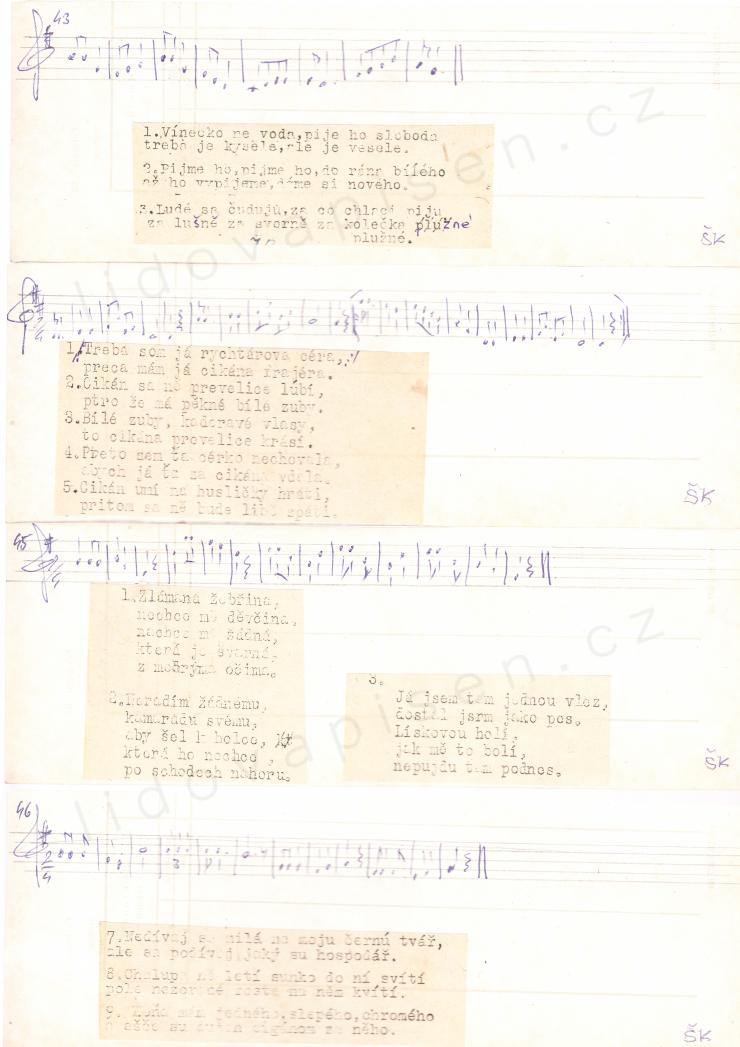 43
1.Vínečko ne voda,pije ho sloboda
treba je kyselé,ale je veselé.
2.Pijme ho,pijme ho,do rána bílého
až ho vypijeme,dáme si nového.
3.Ludé sa čudujú,za co chlapci pijú
za lušně za svorně za kolečka plužné
plužné.
ŠK
2/4
1.Treba som já rychtárova céra,:/
preca mám já cikána frajéra.
2.Cikán sa ně prevelice lúbí,
ptro že má pěkné bílé zuby.
3.Bílé zuby, kaderavé vlasy,
to cikána prevelice krásí.
4.Preto sem ťa cérko nechovala,
abych já ťa za cikána vdala.
5.Cikán umí na husličky hráti,
pritom sa ně bude libě spáti.
ŠK
45
2/4
1.Zlámaná žebřina,
nechce mě děvčina,
nechce mě žádná,
která je švarná,
z modrýma očima.
2.Neradím žádnému,
kamarádu svému,
aby šel k holce,
která ho nechce,
po schodech nahoru.
3.
Já jsem tam jednou vlez,
dostal jsrm jako pes.
Lískovou holí,
jak mě to bolí,
nepujdu tam podnes.
ŠK
46
2/4
7.Nedívaj sa milá na moju černú tvář,
ale sa podívaj,jaký su hospodář.
8.Chalupa ně letí sunko do ní svítí
pole nezorané roste na něm kvítí.
9. mám jedného,slepého,chromého
su cigánom za něho.
ŠK
lidovapisen.cz
lidovapisen.cz